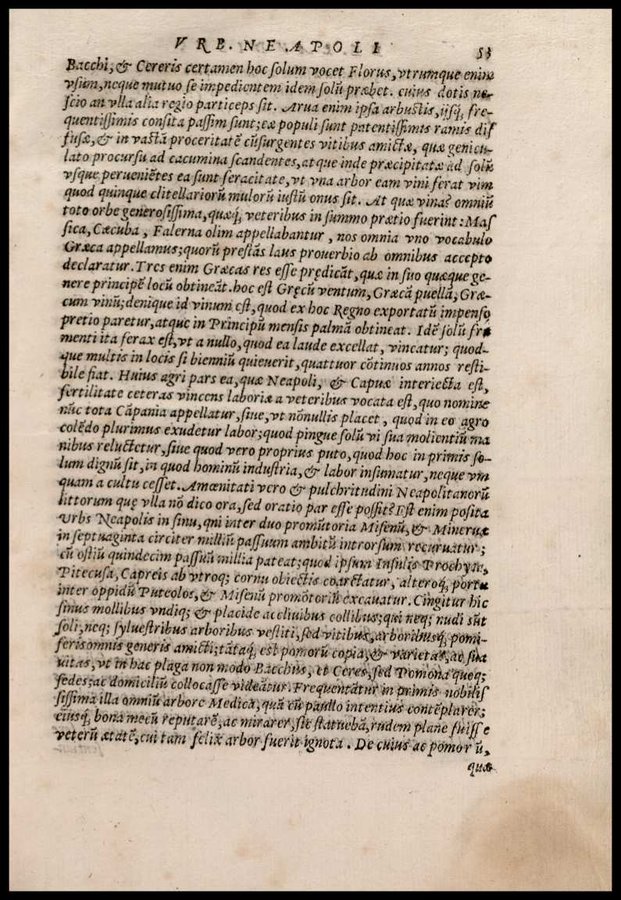 VRB. NEAPOLI 83
Bacchi; & Cereris certamen hoc solum vocet Florus, vtrumque enim
vsum, neque mutuo se impedientem idem solū præbet. cuius dotis ne-
scio an vlla alia regio particeps sit. Arua enim ipsa arbustis, ijsq́; fre-
quentissimis consita passim sunt; eæ populi sunt patentissimis ramis dif
fusæ, & in vastā proceritatē cūsurgentes vitibus amictæ, quæ genicu-
lato procursu ad cacumina scandentes, atque inde præcipitatæ ad solū
vsque perueniētes ea sunt feracitate, vt vna arbor eam vini ferat vim
quod quinque clitellariorū mulorū iustū onus sit. At quæ vina? omniū
toto orbe generosissima, quæq́; veteribus in summo prætio fuerint: Mas
sica, Cæcuba, Falerna olim appellabantur, nos omnia vno vocabulo
Græca appellamus; quorū prestās laus prouerbio ab omnibus accepto
declaratur. Tres enim Græcas res esse prędicāt, quæ in suo quæque ge-
nere principē locū obtineāt. hoc est Gręcū ventum, Græcā puellā, Græ-
cum vinū; denique id vinum est, quod ex hoc Regno exportatū impenso
pretio paretur, atque in Principū mensis palmā obtineat. Idē solū fru
menti ita ferax est, vt a nullo, quod ea laude excellat, vincatur; quod-
que multis in locis si bienniū quieuerit, quattuor cōtinuos annos resti-
bile fiat. Huius agri pars ea, quæ Neapoli, & Capuæ interiecta est,
fertilitate ceteras vincens laboriæ a veteribus vocata est, quo nomine
nūc tota Cāpania appellatur, siue, vt nōnullis placet, quod in eo agro
colēdo plurimus exudetur labor; quod pingue solū vi sua molientiū ma
nibus reluctetur, siue quod vero proprius puto, quod hoc in primis so-
lum dignū sit, in quod hominū industria, & labor insumatur, neque vn
quam a cultu cesset. Amœnitati vero & pulchritudini Neapolitanorū
littorum quę vlla nō dico ora, sed oratio par esse possit? Est enim posita
Vrbs Neapolis in sinu, qui inter duo promūtoria Misenū, & Mineruæ
in septuaginta circiter milliū passuum ambitū introrsum recuruatur;
cū ostiū quindecim passuū millia pateat; quod ipsum Insulis Prochyte,
Pitecusa, Capreis ab vtroq; cornu obiectis coarctatur, alteroq́; portu
inter oppidū Puteolos, & Misenū promōtoriū excauatur. Cingitur hic
sinus mollibus vndiq; & placide acclivibus collibus; qui neq; nudi sūt
soli, neq; syluestribus arboribus vestiti, sed vitibus, arboribusq́; pomi-
feris omnis generis amicti; tātaq́; est pomorū copia, & varietas, ac sua
uitas, vt in hac plaga non modo Bacchus, et Ceres, sed Pomona quoq;
sedes; ac domiciliū collocasse videātur. Frequentātur in primis nobilis
sissima illa omniū arbore Medica, quā cū paullo intentius contēplarer;
eiusq́; bona mecū reputarē, ac mirarer, sic statuebā, rudem plane fuisse
veterū ætatē, cui tam felix arbor fuerit ignota. De cuius ac pomorū,
quæ